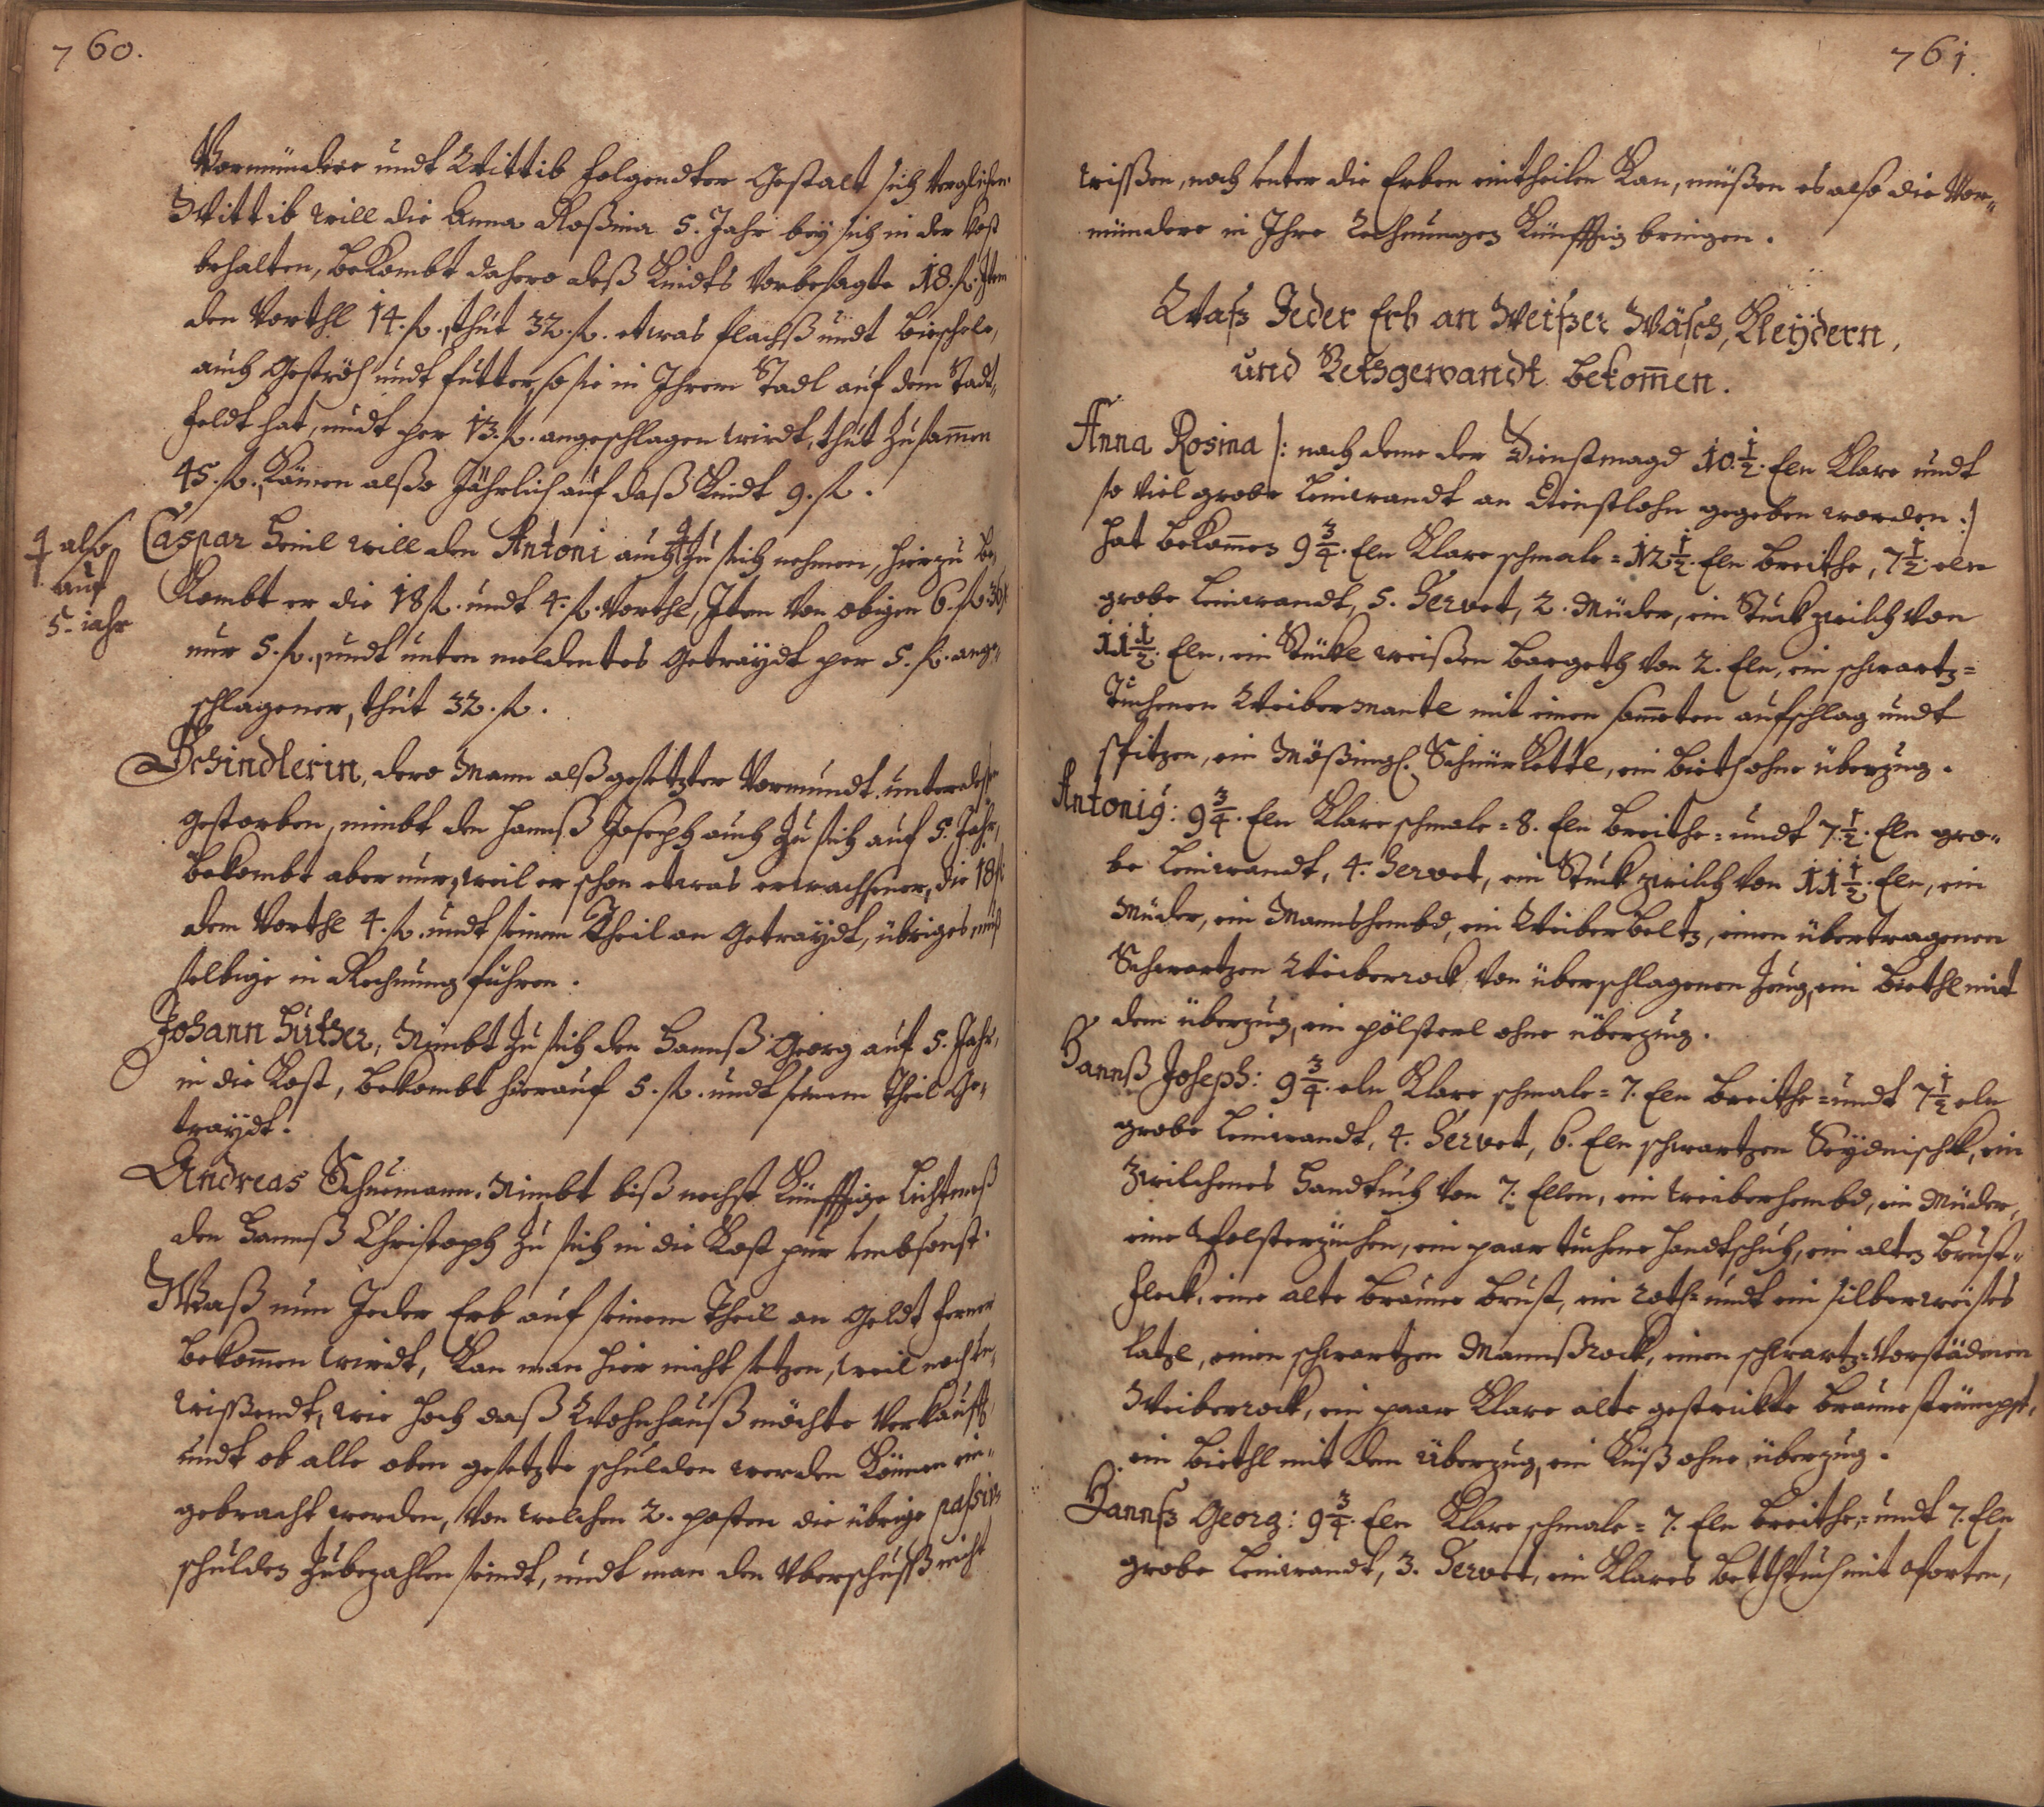 760.
Vormündere undt Wittib folgendter Gestalt sich verglichen.
Wittib will die Anna Roßina 5. Jahr beÿ sich in der Kost
behalten, bekombt dahero deß Kindts vorbesagte 18. f. Item
den Vorthl 14. f., thut 32. f. etwas flachß undt
auch Geströh undt futter, so sie in Ihrem Stadl auf dem Stadt-
feldt hat, undt per 13. f. angeschlagen wirdt, thut zusam̄en
45. f., Kämen alßo Jährlich auf daß Kindt 9. f.
Caspar Heinl will den Antoni auch ╬ zu sich nehmen, hierzu be-
╬ also
auf
5. iahr
Kombt er die 18 f. undt 4. f. Vorthl, Item von obigen 6. f. 30 x
nur 5. f., undt unten meldentes Getraÿdt per 5. f. ange-
schlagener, thut 32. f.
Schindlerin, dero Mann alß gesetzter Vormundt unterdeßen
gestorben, nimbt den Hannß Joseph auch zu sich auf 5. Jahr,
bekombt aber nur, weil er schon etwas erwachsener, die 18 f.
dem Vorthl 4. f. undt seinem Theil an Getraÿdt, übriges muß
selbige in Rechnung führen.
Johann Huther, Nimbt zu sich den Hannß Georg auf 5. Jahr,
in die Kost, bekombt hierauf 5. f. undt seinem Theil Ge-
traÿdt.
Andreas Schuemann. Nimbt biß nechst Künfftige Lichtmeß
den Hannß Christoph zu sich in die Kost pur umbsonst.
Waß nun Jeder Erb auf seinem Theil an Geldt ferner
bekom̄en wirdt, Kan man hier nicht setzen, weil noch un-
wißendt, wie hoch daß Wohnhauß möchte verkaufft,
undt ob alle oben gesetzte schulden werden Können ein-
gebracht werden, von welchen 2. posten die übrige passiv
schulden zubezahlen seindt, undt man den Uberschuß nicht
761.
wißen, noch unter die Erben eintheilen Kan, müßen es also die Vor-
mündere in Ihre Rechnungen Künfftig bringen.
Waß Jeder Erb an Weißer Wäsch, Kleÿdern,
und Bethgewandt bekom̄en.
Anna Rosina /: nach deme der Dienstmagd 10 1/2. Eln Klare undt
so viel grobe Leinwandt an Dienstlohn gegeben worden :/
hat bekom̄en 9 3/4. Eln Klare schmale = 12 1/2. Eln breithe, 7 1/2. eln
grobe Leinwandt, 5. Servet, 2. Müder, ein Stuck zwilch von
11 1/2. Eln, ein Stückl weißen Bargeth von 2. Eln, ein schwartz=
Tuchenen Weibermantl mit einen sam̄eten aufschlag undt
spitzen, ein Mößingl. Schnürkettl, ein Bieth ohne überzug.
Antonig: 9 3/4. Eln Klare schmale = 8. Eln breithe = undt 7 1/2. Eln gro-
be Leinwandt, 4. Servet, ein Stuck zwilch von 11 1/2. Eln, ein
Müder, ein Mannshembd, ein Weiberbeltz, einen übertragenen
Schwartzen Weiberrock von überschlagenen Zeug, ein Biethl mit
dem überzug, ein pölsterl ohne überzug.
Hannß Joseph: 9 3/4. eln Klare schmale = 7. Eln breithe = undt 7 1/2 eln
grobe Leinwandt, 4. Servet, 6. Eln schwartzen ein
zwilchenes Handtuch von 7. Ellen, ein weiberhembd, ein Müder,
eine Polsterzüchen, ein paar tuchene handtschuh, ein alten Brust-
fleck, eine alte braune Brust, ein roth = undt ein silberweißes
latzl, einen schwartzen Mannßrock, einen schwartz=
Weiberrock, ein paar Klare alte gestrickte braune strümpf,
ein Biethl mit dem Überzug, ein Küß ohne überzug.
Hannß Georg: 9 3/4. Eln Klare schmale = 7. Eln breithe = undt 7. Eln
grobe Leinwandt, 3. Servet, ein Klares Betthtuch mit